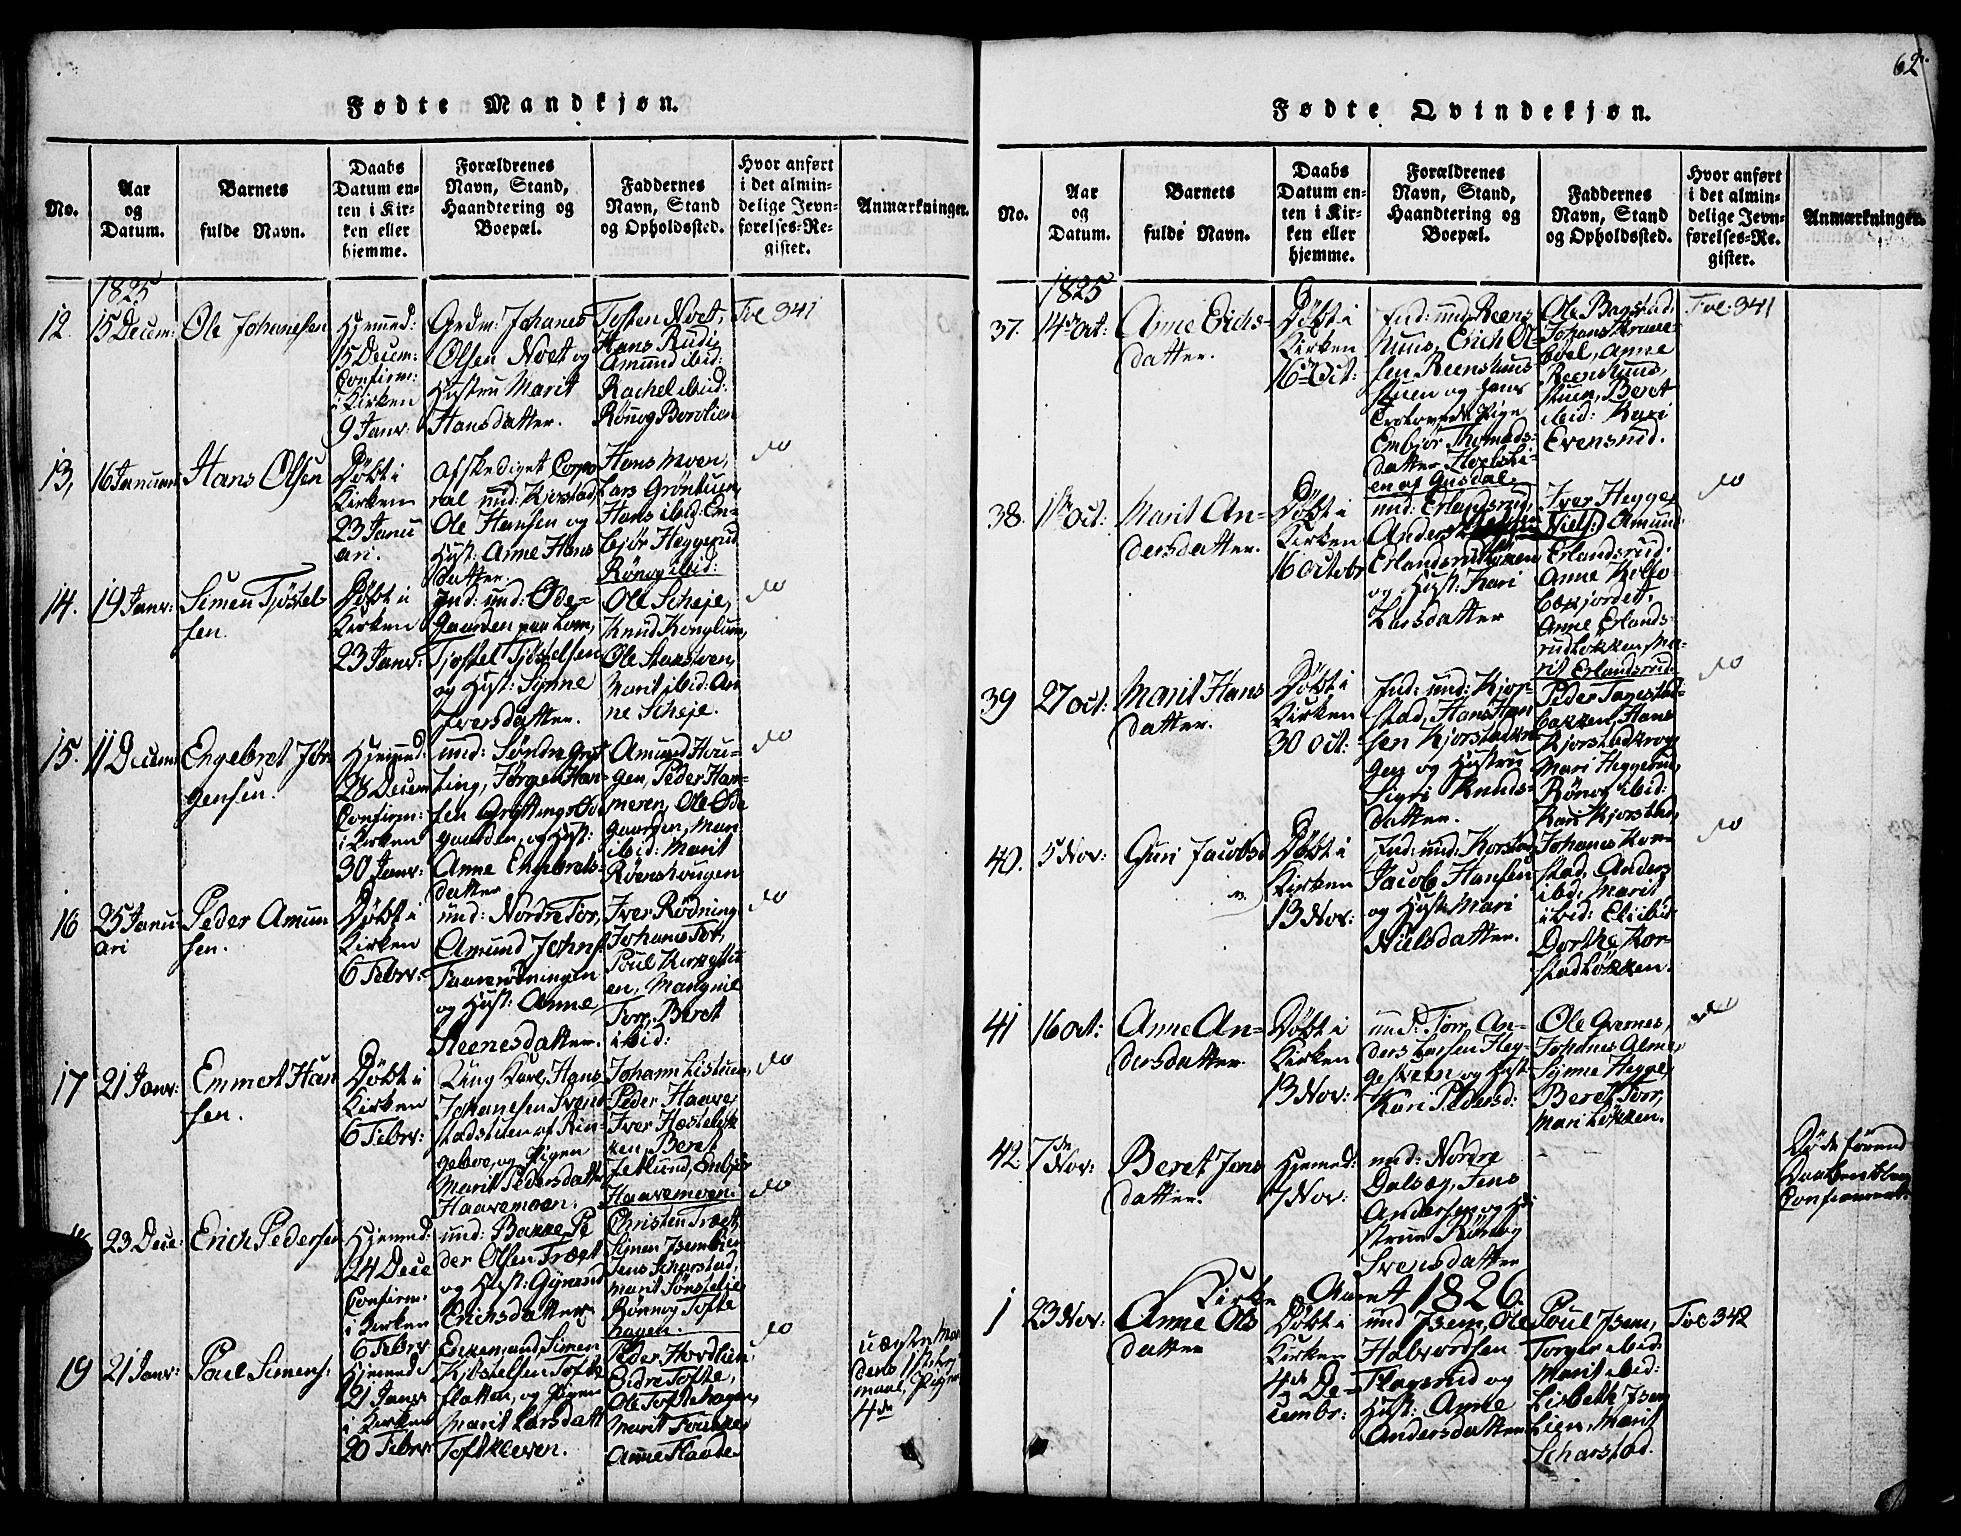 62.
Fødte Mandkjøn.
No.
Aar
og
Datum.
Barnets
fulde Navn.
Daabs
Datum en-
ten i Kir-
ken eller
hjemme.
Forældrenes
Navn, Stand,
Haandtering og
Boepæl.
Faddernes
Navn, Stand
og Opholdssted.
Hvor anført
i det almin-
delige Jevn-
førelses-Re-
gister.
Anmærkninger.
1825
12.
15 Decem:
Ole Johanesen
Hjemmed:
15 Decem:
Confirm:
i Kirken
9 Janr:
Grdm: Johanes
Olsen Noet og
Hustru Marit
Hansdatter.
Testen Noet,
Hans Rudi,
Amund ibid:
Rachel ibid:
Rönog Borolien
Fol 341
13,
16 Januari
Hans Olsen
Döbt i
Kirken
23 Janu
ari.
Afskediget Corpo
ral und: Kjorstad,
Ole Hansen og
Hust: Anne Hans
datter.
Hans Moen,
Lars Gröntuen,
Hans ibid: En-
björ Heggerud
Rönog ibid:
do
14.
19 Janr:
Simen Tjöstels
sen.
Döbt i
Kirken
23 Janr:
Ind: und: Öde-
Gaarden paa Lom,
Tjostel Tjöstelsen
og Hust: Synne
Iversdatter.
Ole Scheje,
Knud Konglum,
Ole Stansven,
Marit ibid: An
ne Scheje.
do
15.
11 Decem:
Engebret Jör
gensen.
Hjemmed:
28 Decem
Confirm:
i Kirken
30 Janr:
und: Söndre Gryt
ting, Jörgen Han-
sen Gryttings Öde
gaarden, og Hust:
Anne Engebrets-
datter
Amund Hou-
gen, Peder Ham-
meren, Ole Öde
gaarden, Mari
ibid: Marit
Röenshougen
do
16
25 Janu
ari
Peder Amun
sen.
Döbt i
Kirken
6 Febr:
und: Nordre Tor,
Amund Johns:
Taarerödningen
og Hust: Anne
Steenesdatter.
Iver Rödning
Johans Tor,
Poul Kirkestu
en, Mangnil
Torr, Beret
ibid:
do
17
21 Janr:
Emmert Han
sen.
Döbt i
Kirken
6 Febr:
Ung Karl, Hans
Johanesen Svend
stadstuen af Rin-
geboe, og Pigen
Marit Pedersdatter
Haavemoen.
Johann Listuen,
Peder Haave,
Iver Hostelök
ken, Beret
Zetlund, Embjör
Haavemoen.
do
23 Dece:
Erich Pedersen
Hjemmed:
24 Dece
Confirm:
i Kirken
6 Febr:
und: Bakke Pe
der Olsen Træet
og Hust: Gyrand
Erichsdatter
Christen Træet,
Simen Isemlien
Jens Scharstad,
Marit Sönstelie
Rönnog Tofte
hagen.
do
19
21 Janr:
Poul Simens:
Hjemmed
21 Janr
i Kirken
20 Febr
Enkemand Simen
Kjöstelsen Tofte
flatten, og Pigen
Marit Larsdatt
Toftkleven.
Peder Hordlien,
Eidre Tofte,
Ole Toftehagen,
Marit Fourke
Anne Flaate
do
uægte Man
dens 1ste Leje
maal, Pigens
4de
Fødte Qvindekjøn.
No.
Aar
og
Datum.
Barnets
fulde Navn.
Daabs
Datum en-
ten i Kir-
ken eller
hjemme.
Forældrenes
Navn, Stand,
Haandtering og
Boepæl.
Faddernes
Navn, Stand
og Opholdssted.
Hvor anført
i det almin-
delige Jevn-
førelses-Re-
gister.
Anmærkninger.
1825
37.
14de Oct:
Anne Erichs-
datter.
Döbt i
Kirken
16de Oct:
Ind: und Reens
huus, Erich Ol-
sen Reenshuus
stuen og hans
Trolovede Pige
Embjör Thomads-
datter Hoelsli-
en af Gusdal.
Ole Bagstad,
Johans Kruse-
boel, Anne
Reenshuus,
stuen, Beret
ibid: Kari
Evensrud.
Fol: 341
38.
1ste Oct:
Marit An-
dersdatter.
Döbt i
Kirken
16 Octobr
und: Erlandsrud,
Anders
Erlandsrudlykken
og Hust: Kari
Larsdatter
Iver Hegge,
Niels: Amund
Erlandsrud:
Anne Kolfo-
bakjordet,
Anne Erlands-
rudlökken, Ma-
rit Erlandsrud:
do
39
27 Oct:
Marit Hans
datter.
Döbt i
Kirken
30 Oct:
Ind: und: Kjor-
stad, Hans Han
sen Kjorstadkro-
gen og Hustru
Sigri Knuds-
datter.
Peder Fagestad-
bakken, Hans
Kjorstadkrog
Mari Heggerud,
Rönog ibid:
Kari Kjorstad,
do
40.
5 Nov:
Guri Jacobsd
Döbt i
Kirken
13 Nov:
Ind: und: Korstad
Jacob Hansen
og Hust: Mari
Nielsdatter.
Johanes Kor-
stad, Anders
ibid, Marit
ibid: Eli ibid
Dorthe Kor-
stadlökken.
do
41
16 Oct:
Anne An-
dersdatter
Döbt i
Kirken
13 Nov:
und: Torr, An-
ders Larsen Heg-
ge og Hust:
Kari Pedersd:
Ole Qvernes,
Johanes Alme,
Synne Hegge,
Beret Torr,
Mari Lökken.
do
42.
7de
Nov:
Beret Jens
datter.
Hjemmed:
7 Nov:
und: Nordre
Dalsæg, Jens
Andersen og Hu
strue Rönog
Svensdatter
Döde förend
Daaben blev
Confirmeret.
Kirke Aaret 1826.
1
23 Nov:
Anne Ols
datter
Döbt i
Kirken
4de De-
cembr:
und Isem, Ole
Halvordsen
Flagsrud og
Hust: Anne
Andersdatter
Poul Isem,
Torger ibid:
Marit ibid:
Lisbeth Isem
Lien, Marit
Scharstad.
Fol 342